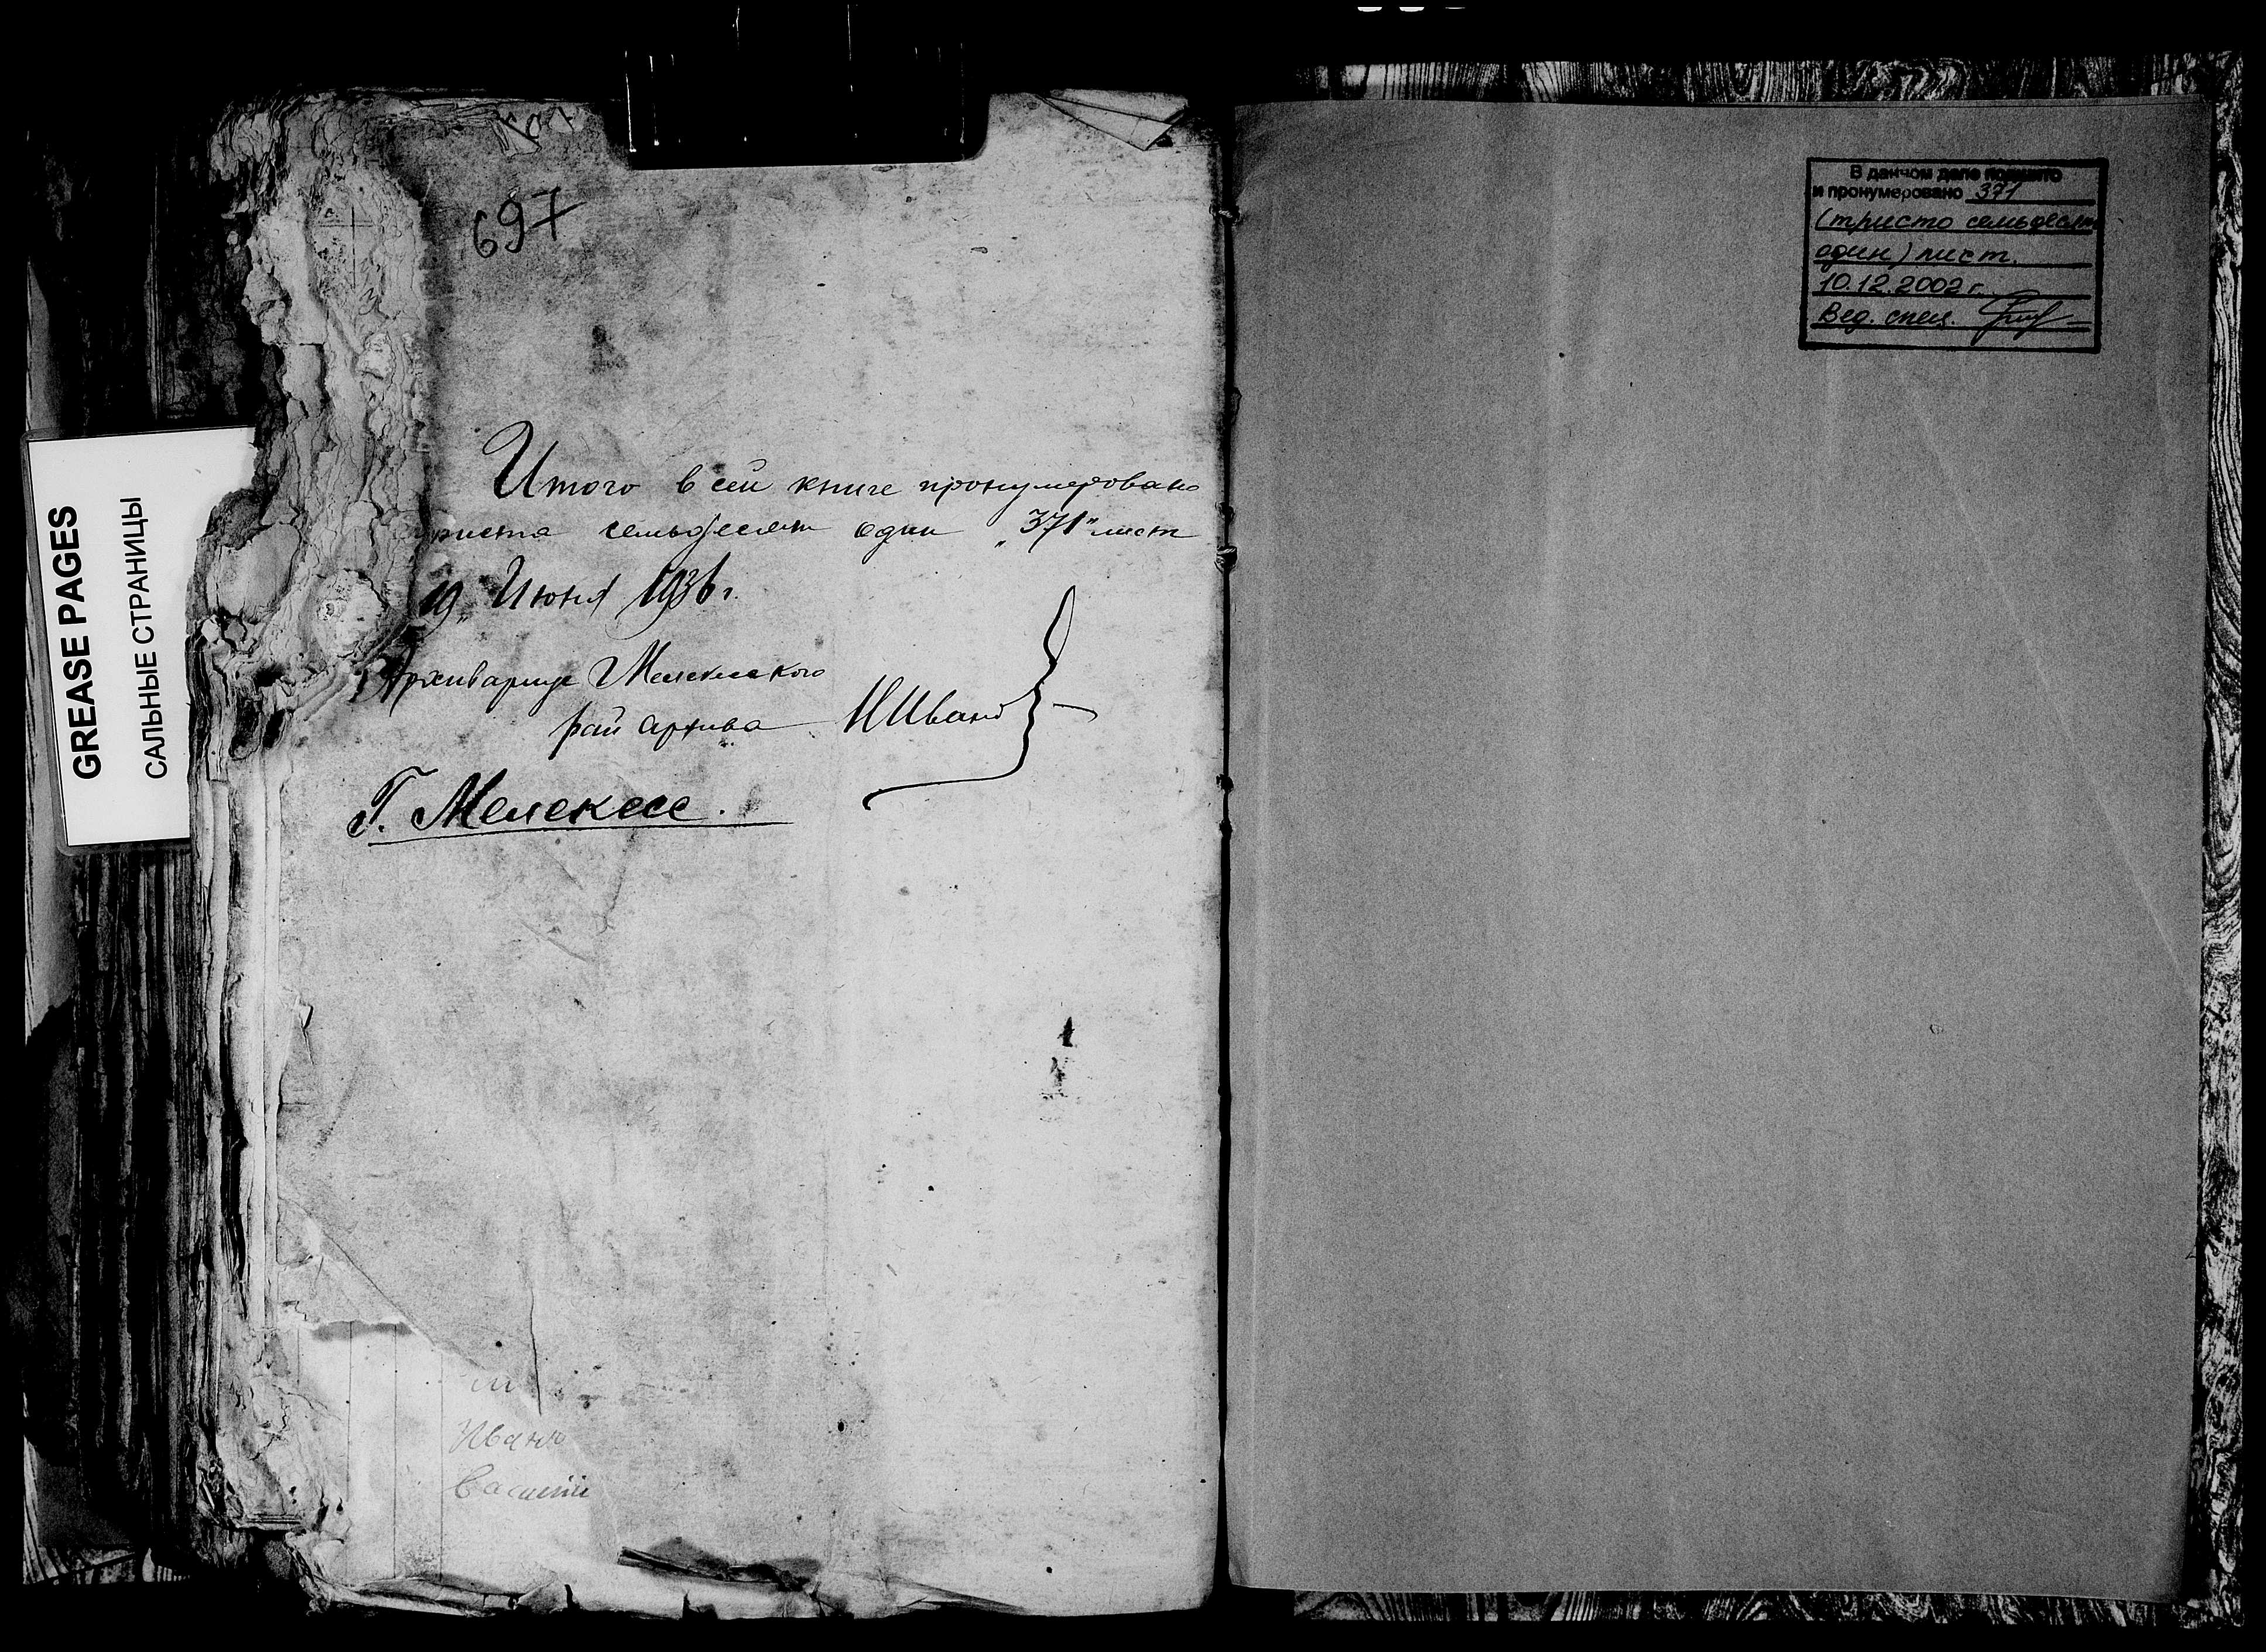 GREASE PAGES
САЛЬНЫЕ СТРАНИЦЫ
697
Итого в сей книге пронумеровано
триста семьдесят один „371" лист
19 „ Июня 1936 г.
Архивариус Мелекесского
рай архива НИванов
Г. Мелекесс.
Иванъ
Василій
В данном деле подшито
и пронумеровано 371
(тристо семьдесят
один) лист.
10.12.2002 г.
Вед. спец.